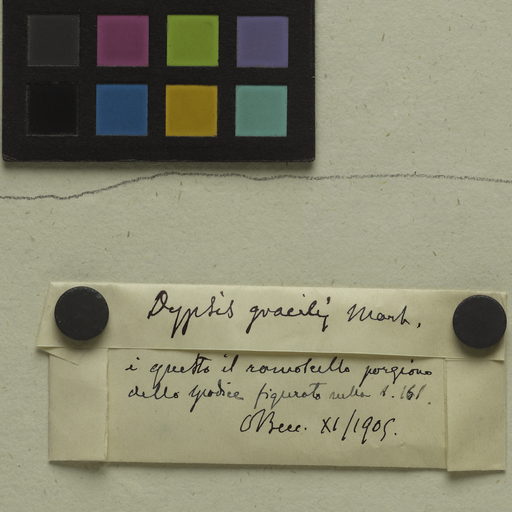 Dypsis gracilis Mart.
è questo il ramoscello porzione
dello spadice figurato nella t. 161.
OBecc. XI/1905.